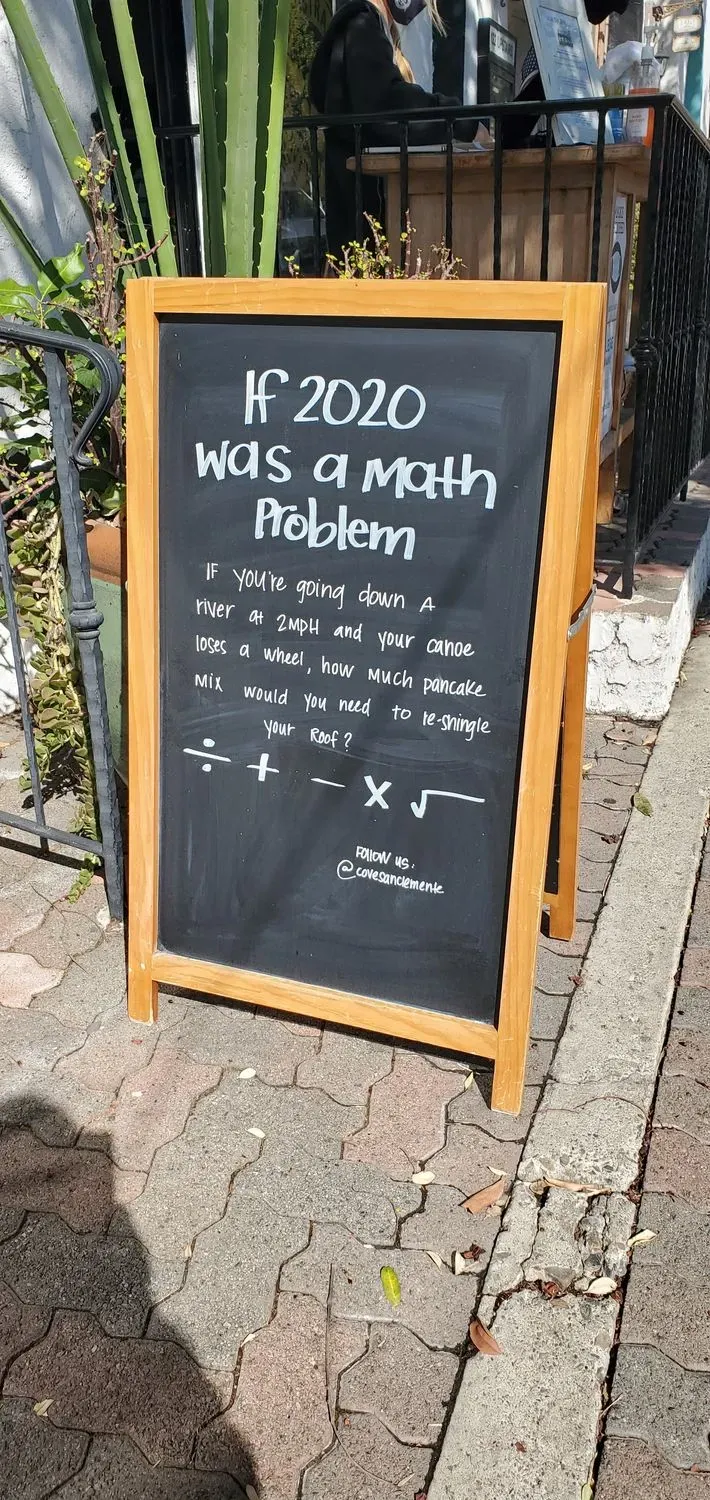 If 2020
was a Math
Problem
IF you're going down A
river at 2MPH and your canoe
loses a wheel, how much pancake
mix would you need to re-shingle
your Roof?
÷ + − × √
Follow us:
@covesanclemente